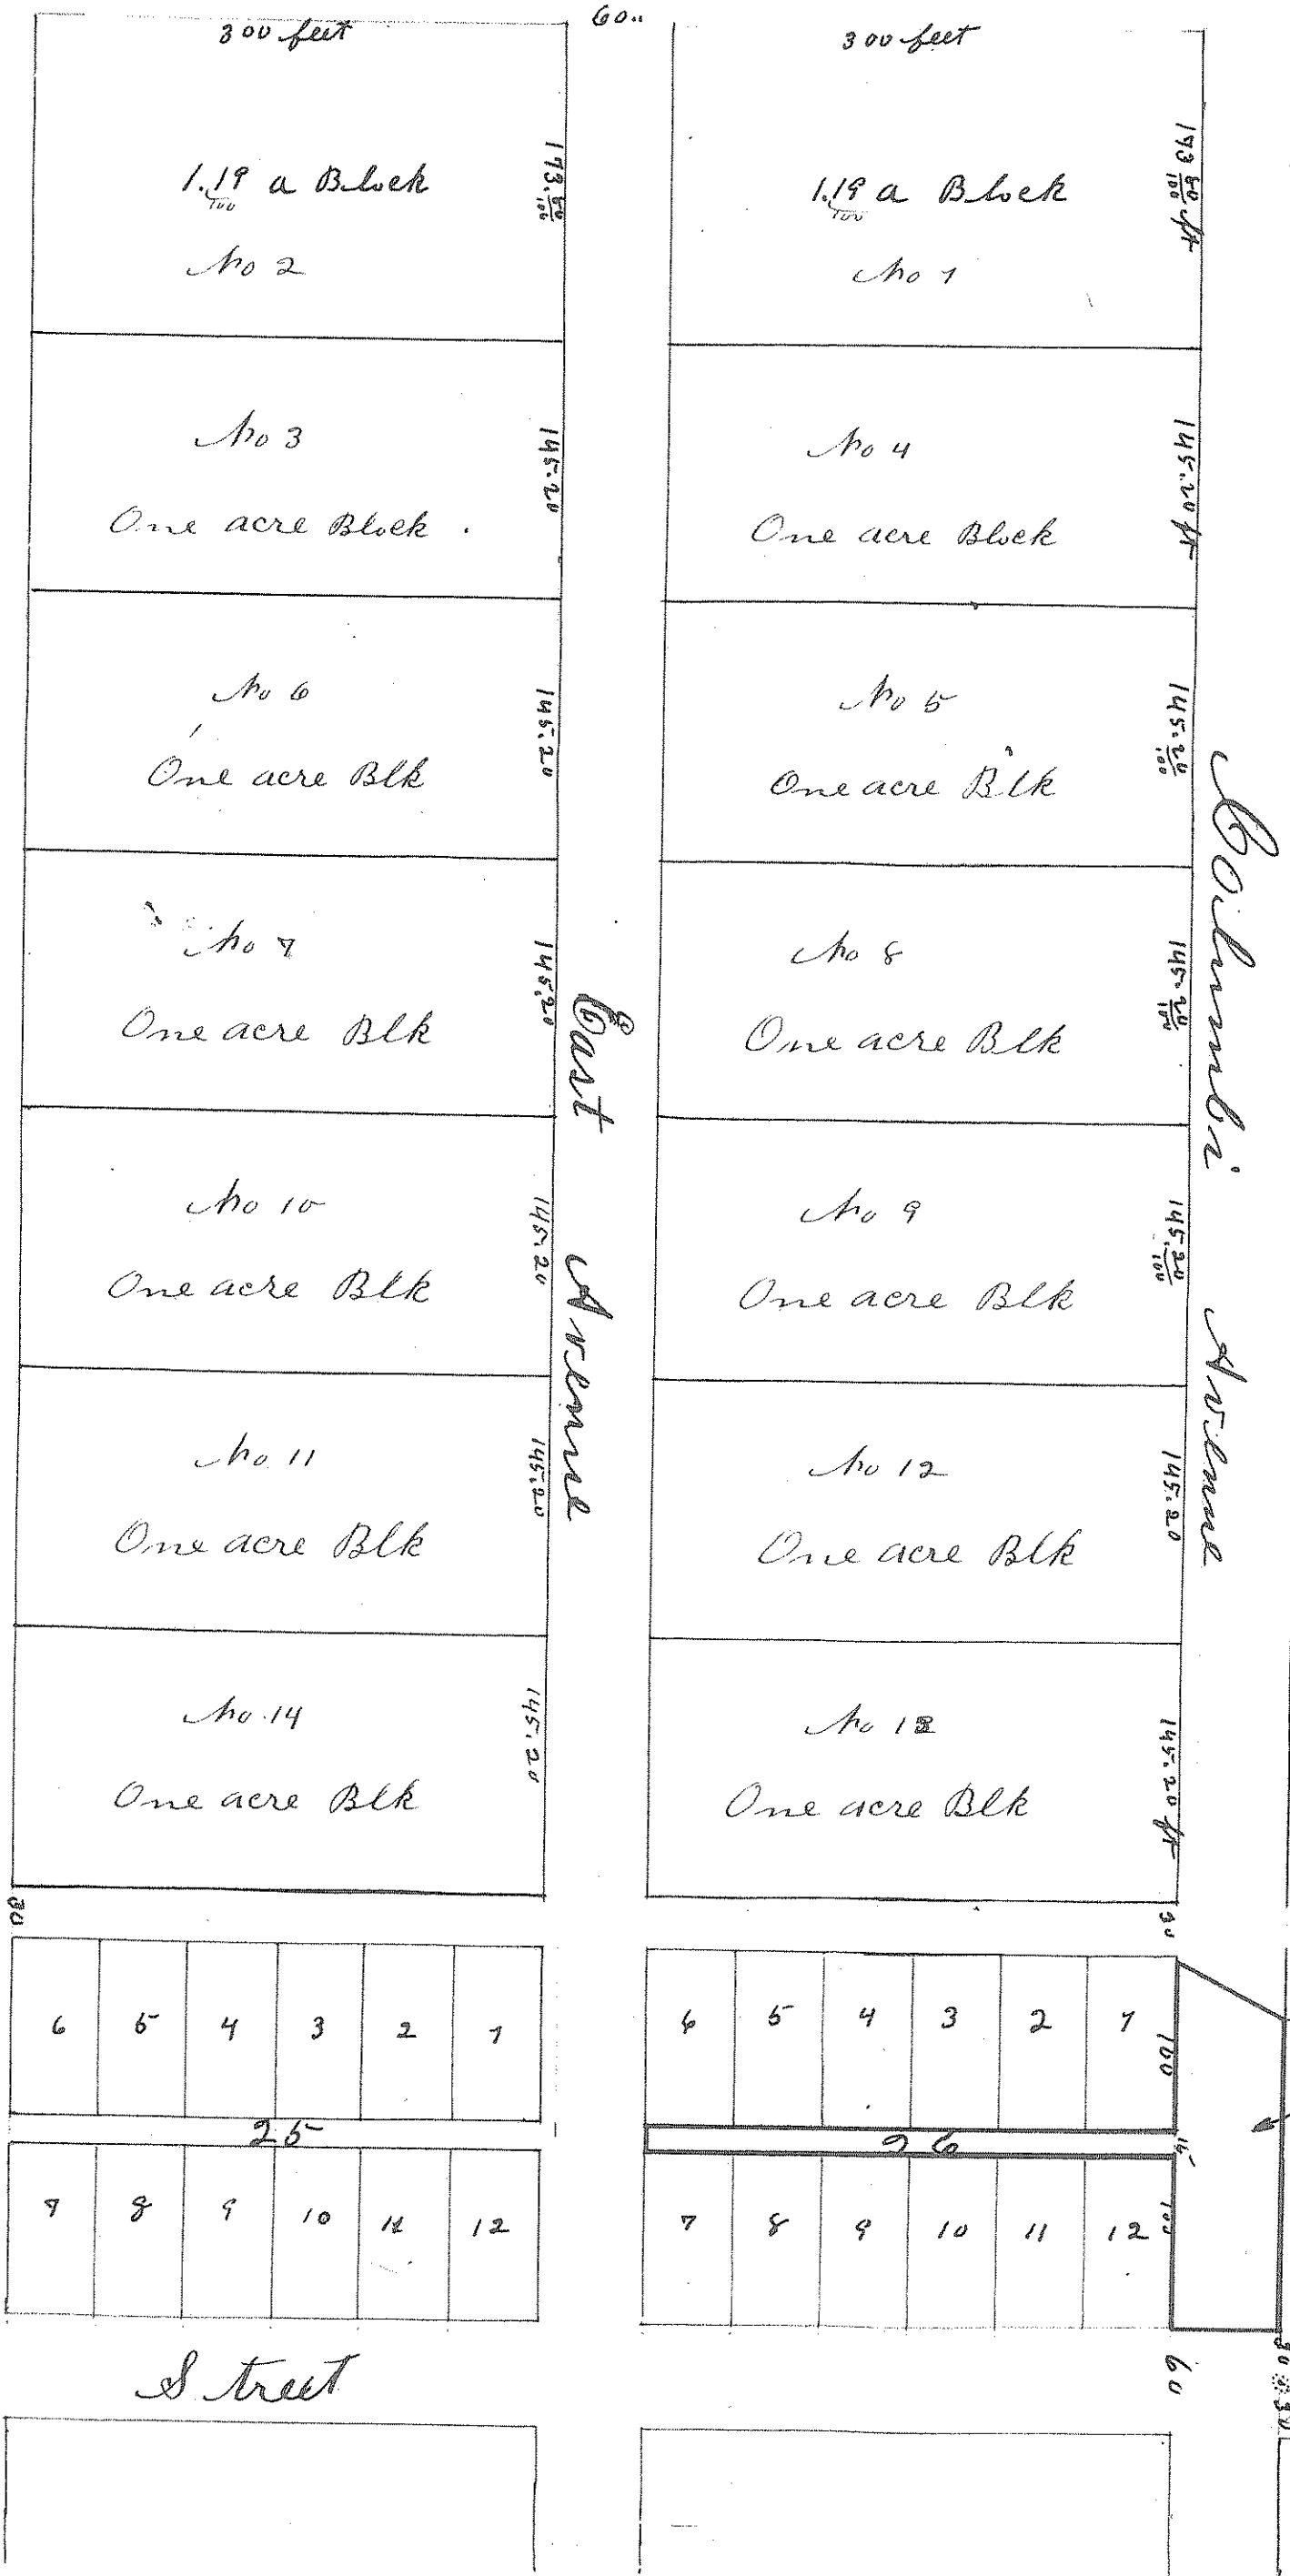 300 feet
60
300 feet
1.19/100 a Block
No 2
173.60/100
1.19/100 a Block
No 1
173 60/100 ft
No 3
One acre Block
145.20
No 4
One acre Block
145.20 ft
No 6
One acre Blk
145.20
No 5
One acre Blk
145.20/100
No 7
One acre Blk
145.20
No 8
One acre Blk
145.20/100
No 10
One acre Blk
145.20
No 9
One acre Blk
145.20/100
No 11
One acre Blk
145.20
No 12
One acre Blk
145.20
No 14
One acre Blk
145.20
No 13
One acre Blk
145.20 ft
East Avenue
Columbi Avenue
30
30
6 5 4 3 2 1
25
7 8 9 10 11 12
6 5 4 3 2 1
100
26
7 8 9 10 11 12
100
Street
60
30
30